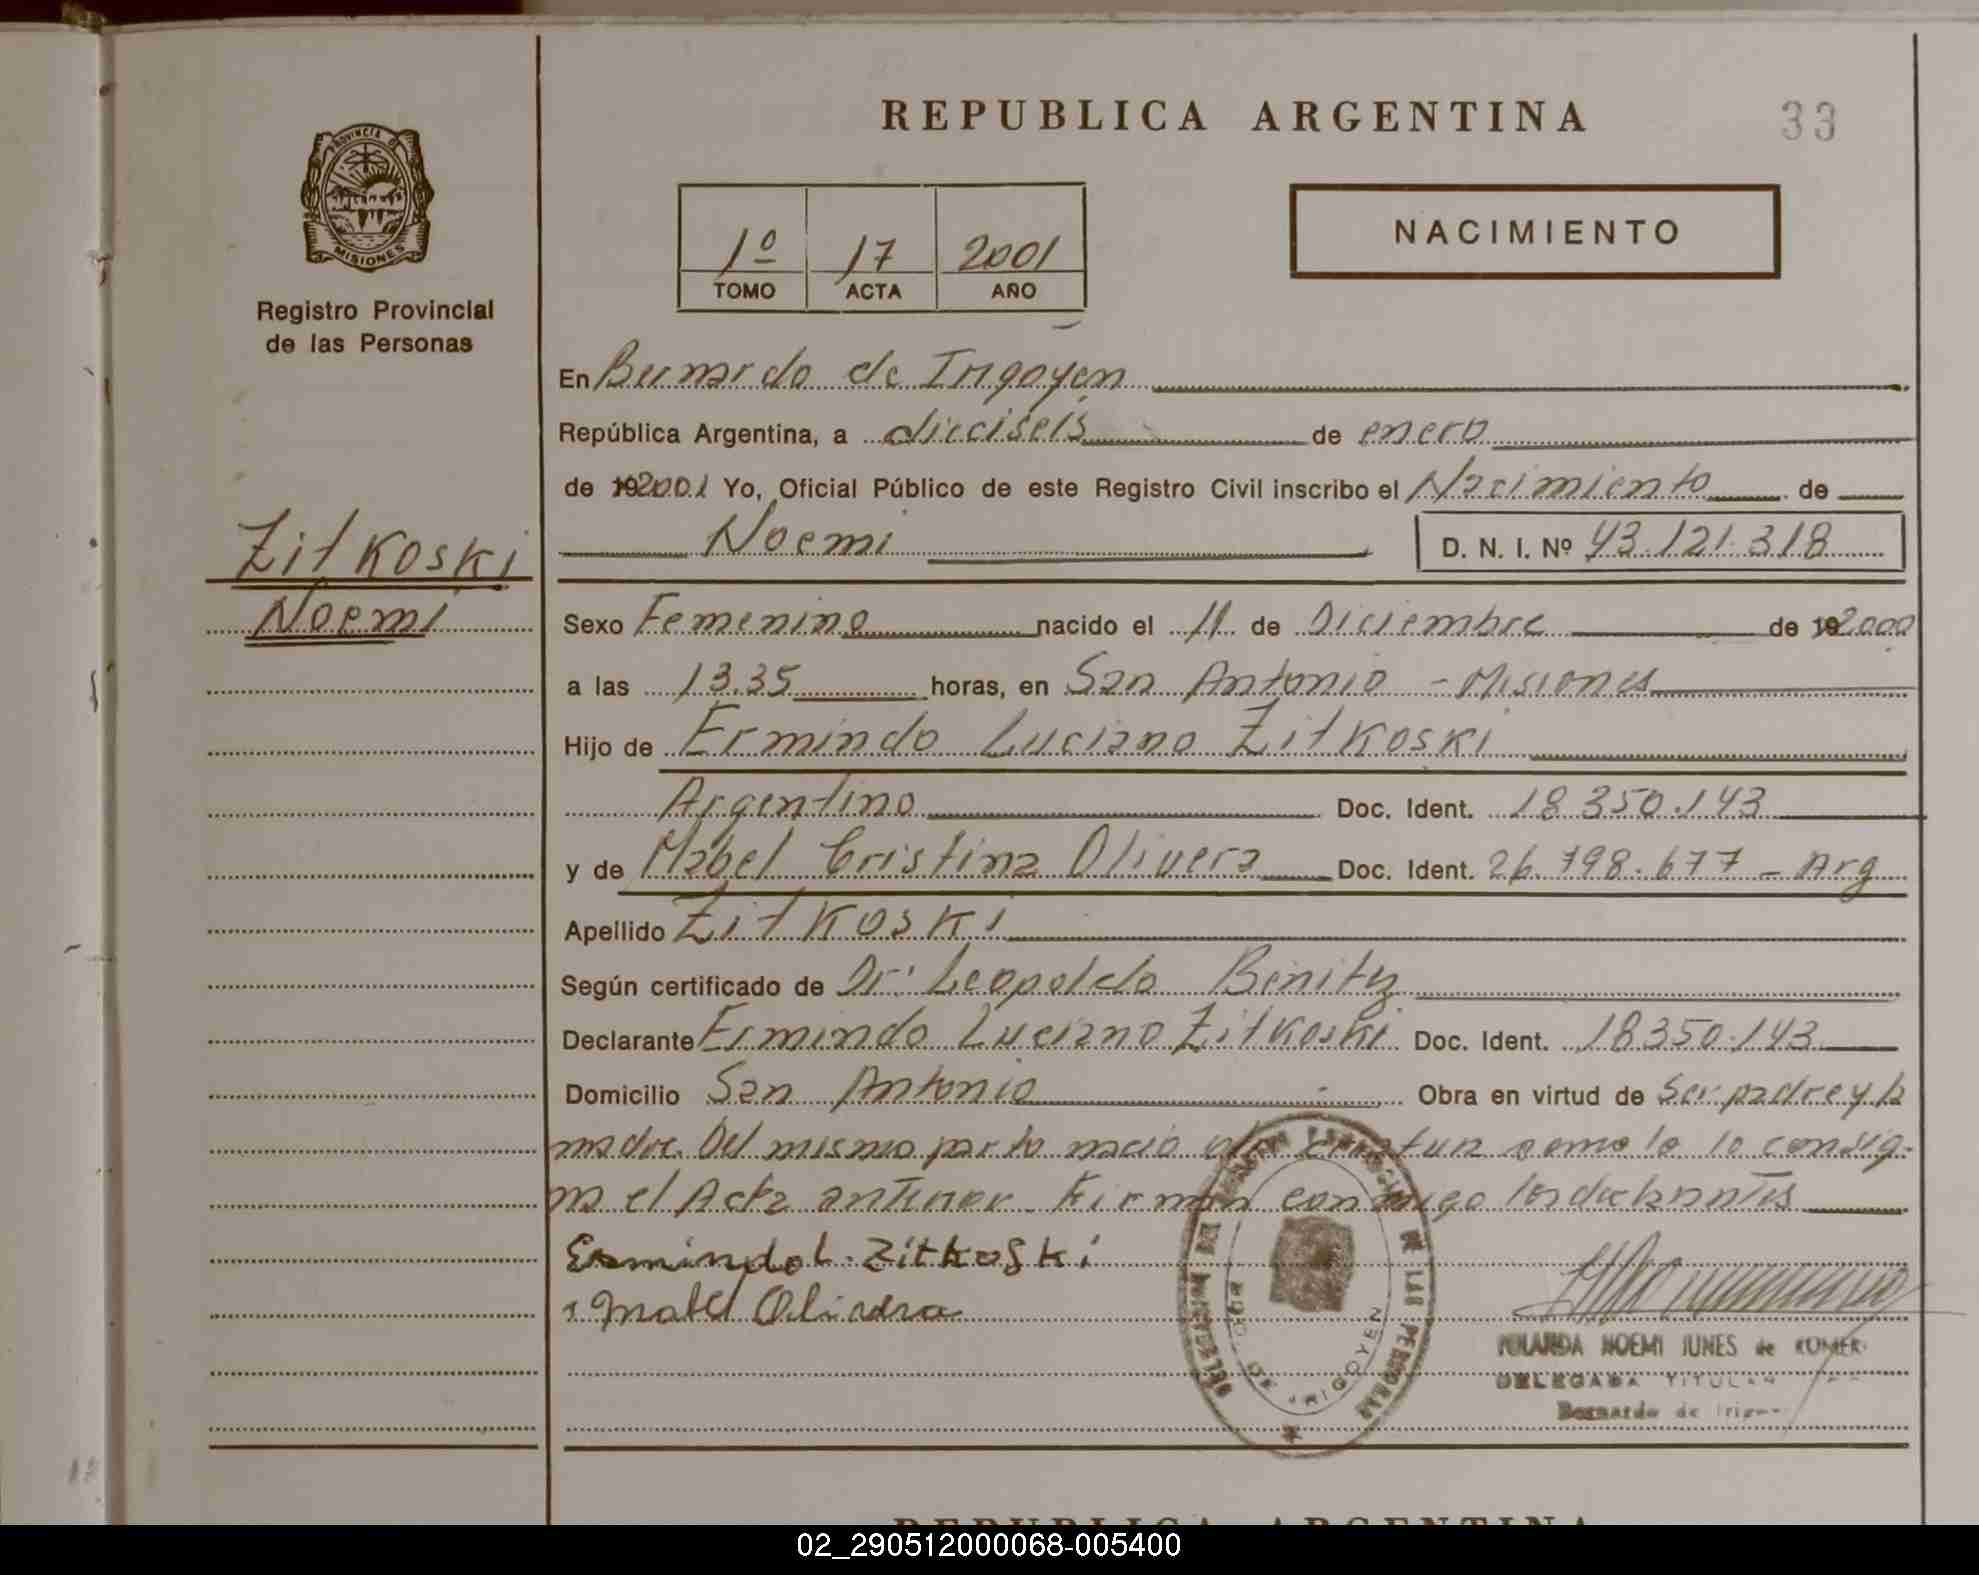 REPUBLICA ARGENTINA
33
PROVINCIA D
MISIONES
Registro Provincial
de las Personas
1º 17 2001
TOMO ACTA AÑO
NACIMIENTO
En Bernardo de Irigoyen
República Argentina, a dieciseis de enero
de 192001 Yo, Oficial Público de este Registro Civil inscribo el Nacimiento de
Noemi D. N. I. Nº 43.121.318
Zitkoski
Noemi
Sexo Femenino nacido el 11 de Diciembre de 192000
a las 13.35 horas, en San Antonio - Misiones
Hijo de Ermindo Luciano Zitkoski
Argentino Doc. Ident. 18.350.143
y de Mabel Cristina Olivera Doc. Ident. 26.798.677 - Arg
Apellido Zitkoski
Según certificado de Dr. Leopoldo Benitez
Declarante Ermindo Luciano Zitkoski Doc. Ident. 18350.143
Domicilio San Antonio Obra en virtud de ser padre y la
madre. Del mismo parto nació otra como lo consig-
na el Acta anterior. Firman conmigo los declarantes
Ermindo L. Zitkoski
Mabel Olivera
DE LAS PERSONAS
BDO. DE IRIGOYEN
YOLANDA NOEMI JUNES de ROMER
DELEGADA TITULAR
Bernardo de Irigoyen
REPUBLICA ARGENTINA
02_290512000068-005400